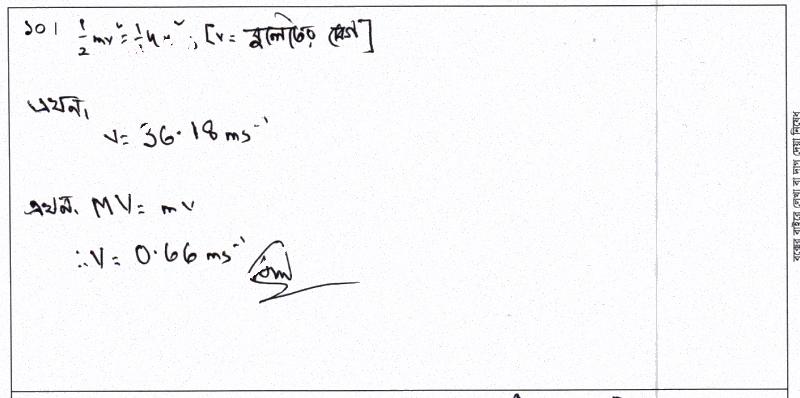 ১০। ½mv² = ½kx²; [v = বুলেটের বেগ]
এখন,
v = 36.18 ms⁻¹
এখন, MV = mv
∴V = 0.66 ms⁻¹
বক্সের বাইরে লেখা বা দাগ দেয়া নিষেধ